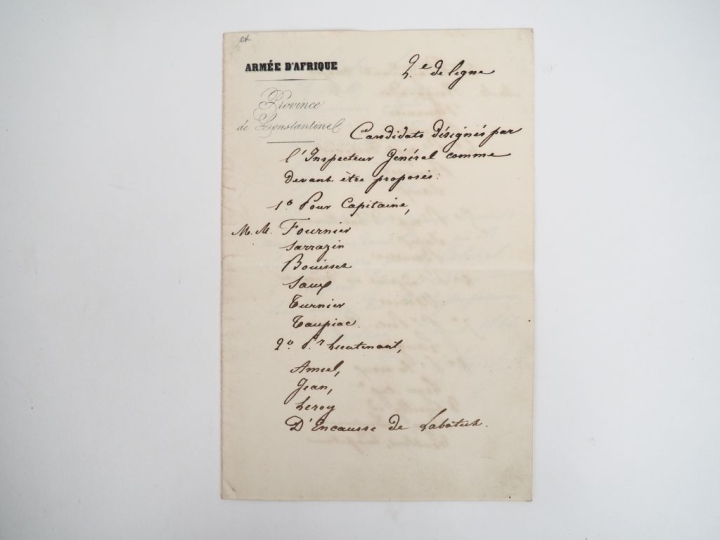 ARMÉE D'AFRIQUE
2.e de ligne
Province
de Constantine
Candidats désignés par
l'Inspecteur Général comme
devant être proposés:
1º Pour Capitaine,
M.M. Fournier
Sarrazin
Bouisset
Saux
Turnier
Taupiac.
2º P.r Lieutenant,
Amiel,
Jean,
Leroy
D'Encausse de Labatut.